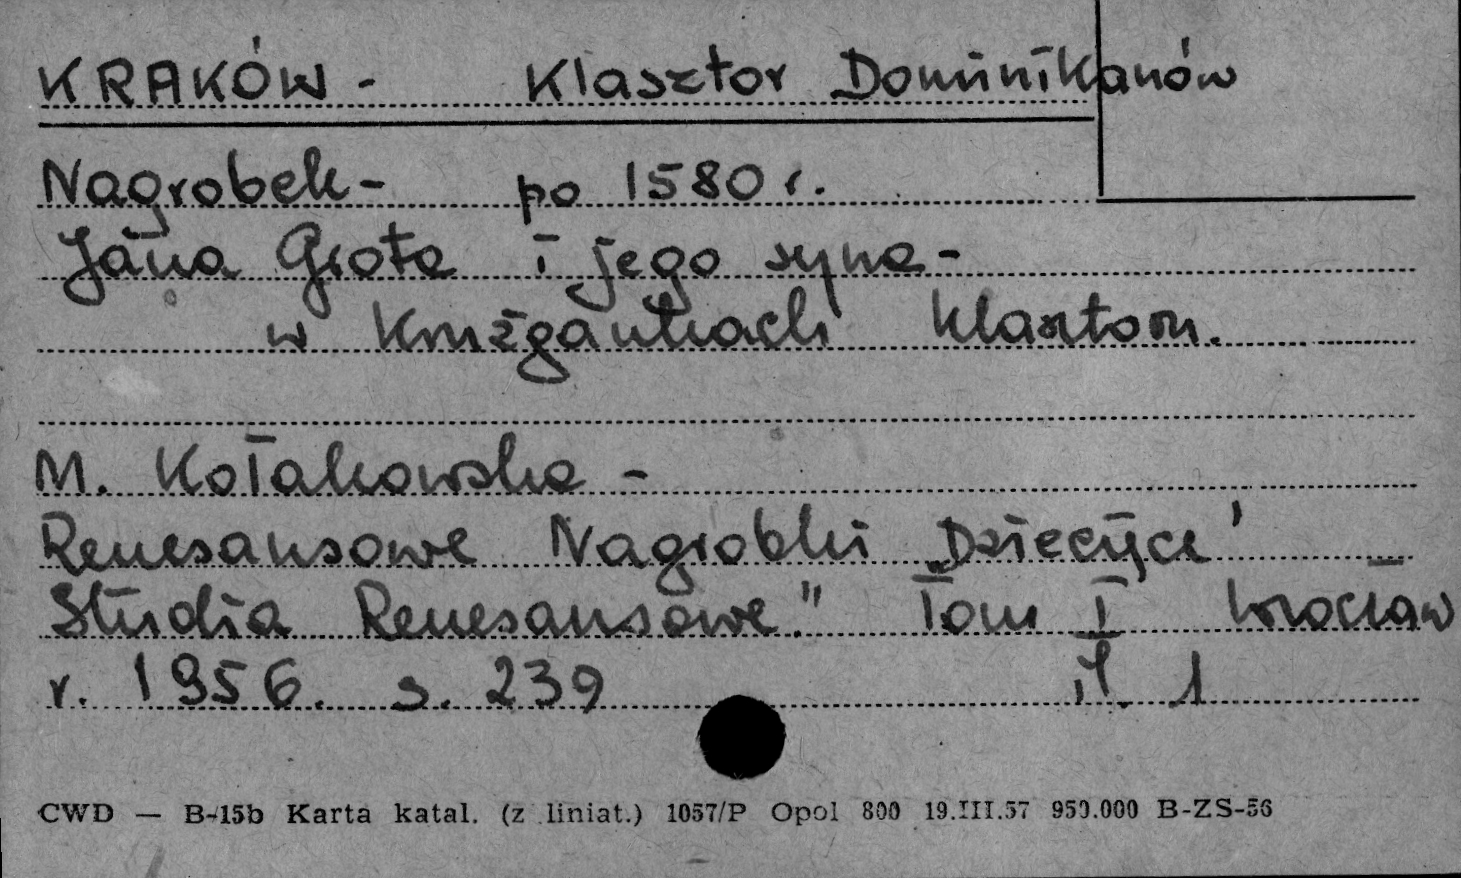 KRAKÓW - Klasztor Dominikanów
Nagrobek - po 1580 r.
Jana Grota i jego syna -
w Krużgankach klasztoru.
M. Kołakowska -
Renesansowe Nagrobki Dziecięce'
„Studia Renesansowe." Tom I Wrocław
r. 1956. s. 239 il. 1
CWD — B-15b Karta katal. (z liniat.) 1057/P Opol 800 19.III.57 950.000 B-ZS-56